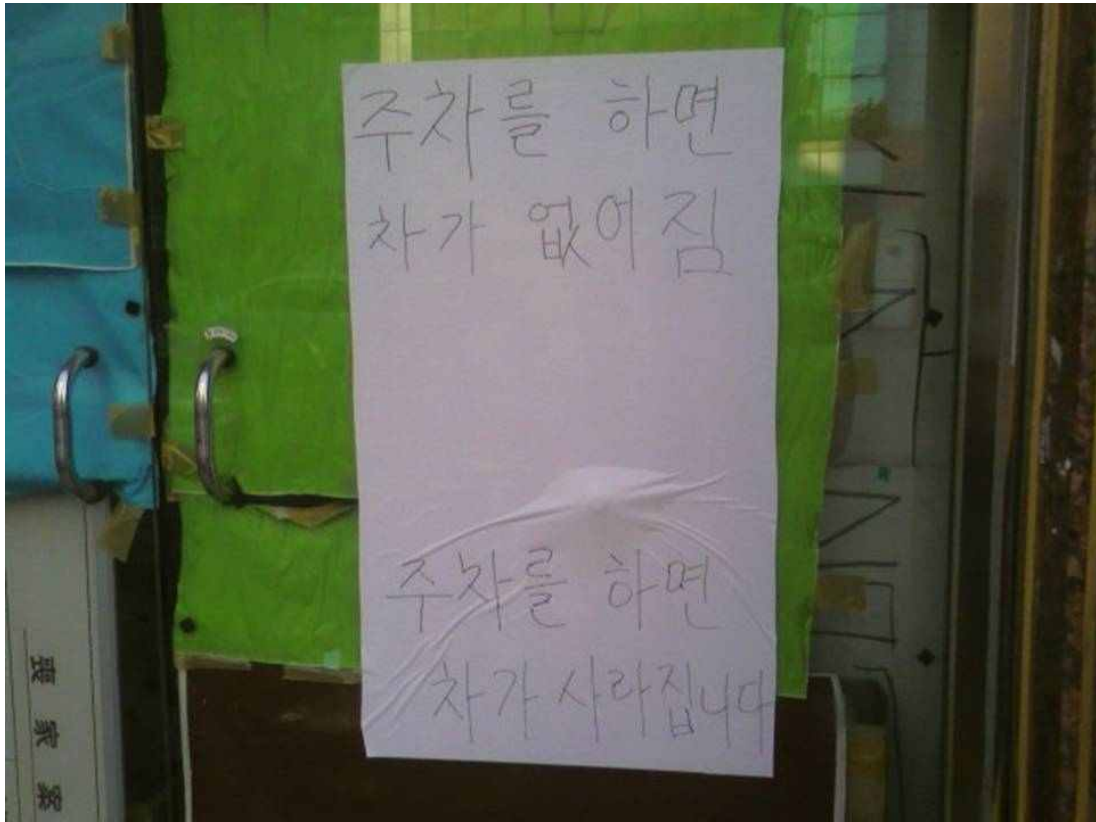 주차를 하면
차가 없어짐
주차를 하면
차가 사라집니다